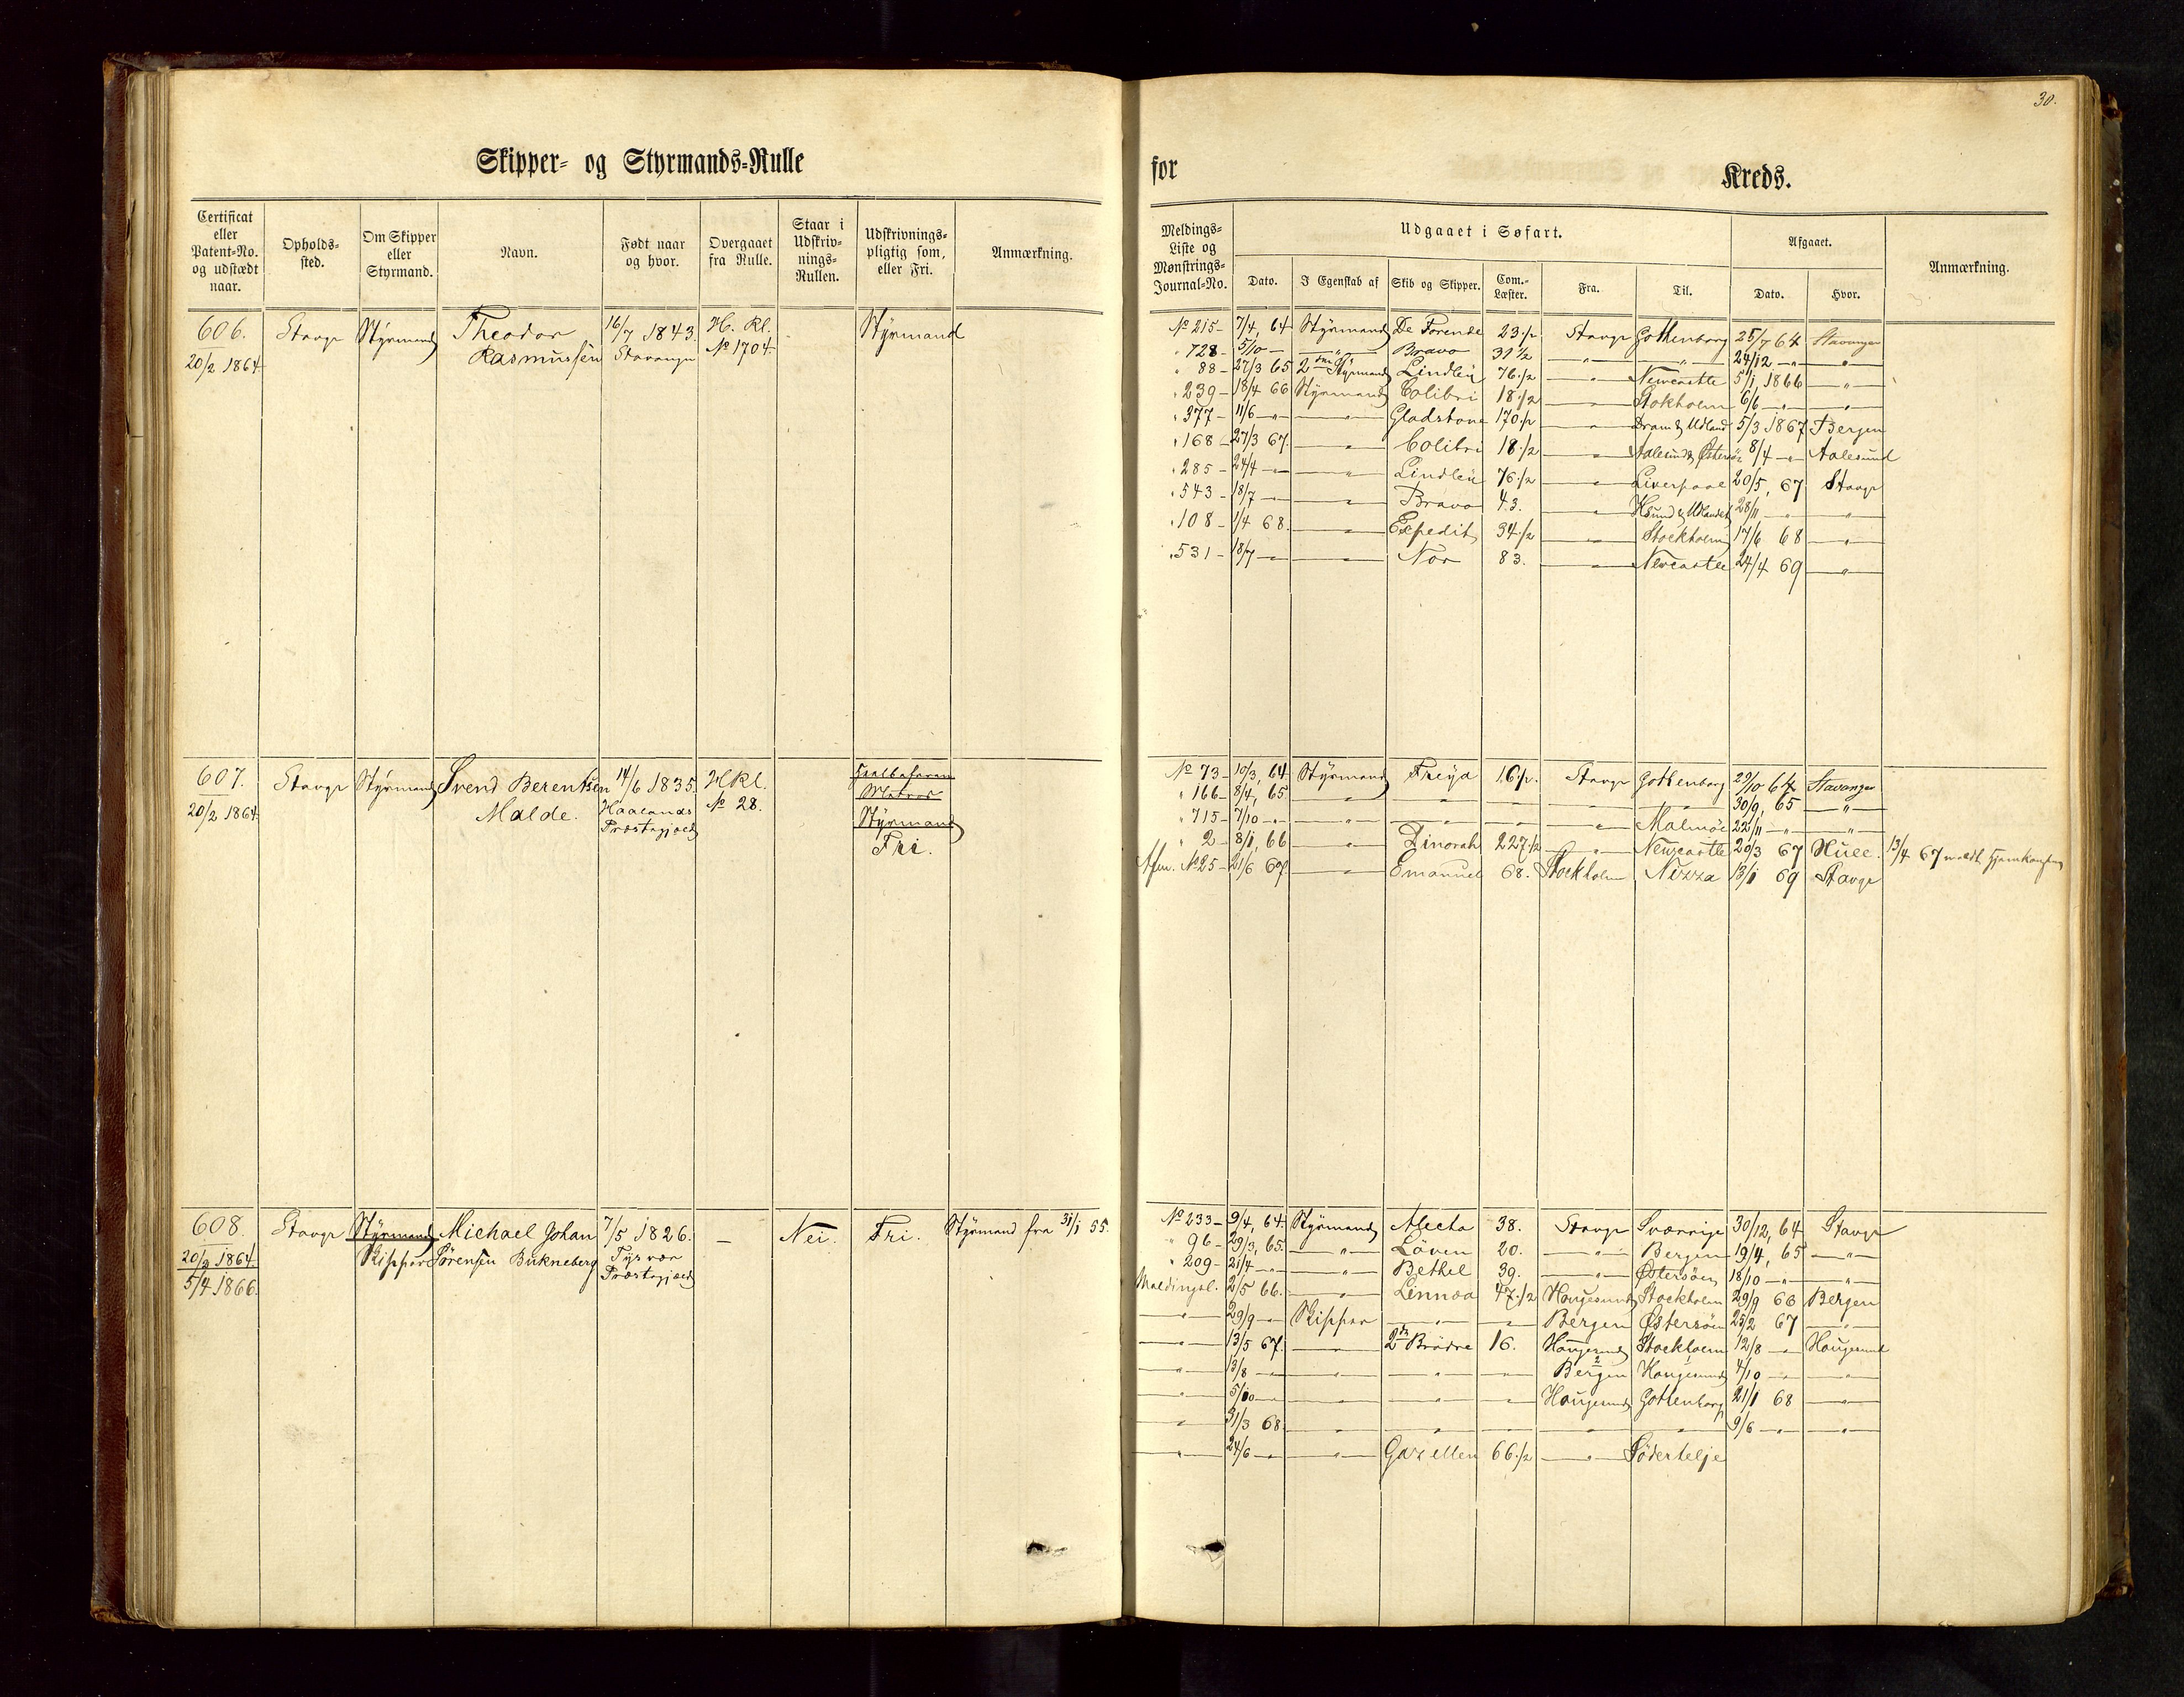 30.
Skipper- og Styrmands-Rulle
for Kreds.
Certificat eller Patent-No. og udstædt naar.
Opholds-sted.
Om Skipper eller Styrmand.
Navn.
Født naar og hvor.
Overgaaet fra Rulle.
Staar i Udskriv-nings-Rullen.
Udskrivnings-pligtig som, eller Fri.
Anmærkning.
Meldings-Liste og Mønstrings-Journal-No.
Udgaaet i Søfart.
Dato.
I Egenskab af
Skib og Skipper.
Com.-Læster.
Fra.
Til.
Afgaaet.
Dato.
Hvor.
Anmærkning.
606. Stavgr Styrmand Theodor 16/7 1843. H. Rl. Styrmand
20/2 1864. Rasmussen Stavanger № 1704.
№ 215 - 7/4, 64 Styrmand De Forende 23 1/2 Stavgr Gothenborg 25/7 64 Stavanger
" 728 - 5/10 - " Bravo 31 1/2 " " 24/12 - " "
" 88 - 27/3 65 2den Styrmand Lindley 76 1/2 " Newcastle 5/1, 1866 "
" 239 - 18/4 66 Styrmand Colibri 18 1/2 " Stokholm 6/6 - " "
" 377 - 11/6 - " " Gladstone 170 1/2 " Dram & Udland 5/3 1867 Bergen
" 168 - 27/3 67. " Colibri 18 1/2 " Aalesund & Østersøe 8/4 - " Aalesund
" 285 - 24/4 - " " Lindley 76 1/2 " Liverpool 20/5, 67 Stavgr
" 543 - 18/7 - " " Bravo 43. " Hsund & Udlandet 28/11 - " "
" 108 - 1/4 68. " Expedit 34 1/2 " Stockholm 17/6 68 "
" 531 - 18/7 - " " Nor 83. " Newcastle 24/4 69 "
607. Stavgr Styrmand Svend Berentsen 14/6 1835. H Rl.
20/2 1864. Malde. Haalands № 28. Matros
Præstegjæld Styrmand
Fri.
№ 73 - 10/3, 64. Styrmand Freya 16 1/2. Stavgr Gothenborg 29/10 64 Stavanger
" 166 - 8/4, 65 " " " " " 30/9, 65 "
" 715 - 7/10 - " " " " " Malmöe 22/11 - " "
" 2 - 8/1, 66 " Dinorah 227 1/2 " Newcastle 20/3 67 Hull. 13/4 67 meldt Hjemkomsten
Afm. № 25 - 21/6 67. " Emanuel 68. Stockholm Nizza 13/1 69 Stavgr
608. Stavgr Styrmand Michael Johan 7/5 1826. - Nei. Fri. Styrmand fra 31/1 55.
20/2 1864. Skipper Sørensen Bukneberg Tysvær
5/4 1866. Præstegjæld
№ 233 - 9/4, 64. Styrmand Alecto 38. Stavgr Sverrige 30/12, 64 Stavgr
" 96 - 29/3, 65. " Löven 20. " Bergen 19/4, 65 "
" 209 - 21/4 - " " Bethel 39. " Østersøen 18/10 - " "
Meldingsl. 2/5 66. " Linnea 47 1/2 Haugesund Stockholm 29/9 66 Bergen
" 29/9 - " Skipper " " Bergen Østersøen 25/2 67 "
" 13/5 67. " 2de Brødre 16. Haugesund Stockholm 12/8 - " Haugesund
" 13/8 - " " " " Bergen Haugesund 4/10 - " "
" 5/10 - " " " " Haugesund Gothenborg 21/1 68 "
" 31/3 68. " " " " " 9/6 - " "
" 24/6 - " " Gazellen 66 1/2 " Södertelje